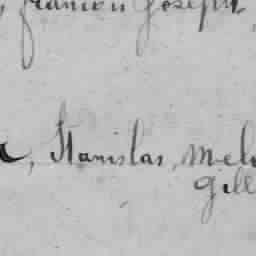 françois Joseph
, Stanislas, Mel
Gill